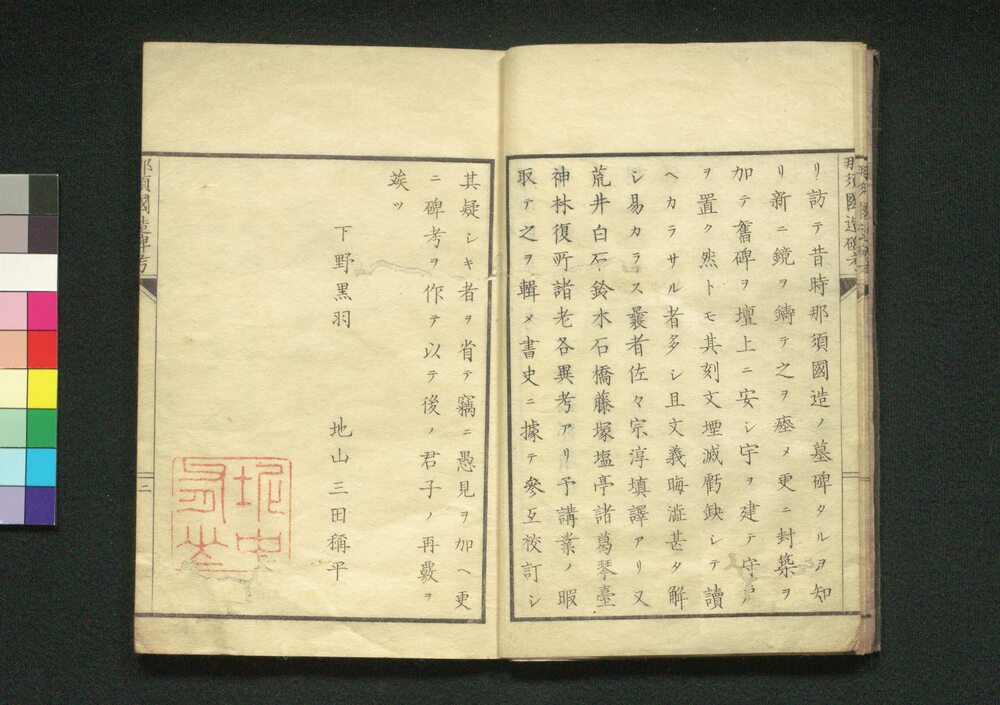 那須國造碑考
リ訪テ昔時那須國造ノ墓碑タルヲ知
リ新ニ鏡ヲ鑄テ之ヲ瘞メ更ニ封築ヲ
加テ舊碑ヲ壇上ニ安シ宇ヲ建テ守戸
ヲ置ク然トモ其刻文堙滅虧缺シテ讀
ヘカラサル者多シ且文義晦澁甚タ解
シ易カラス曩者佐々宗淳填譯アリ又
荒井白石鈴木石橋藤塚塩亭諸葛琴臺
神林復所諸老各異考アリ予講業ノ暇
取テ之ヲ輯メ書史ニ據テ參互校訂シ
其疑シキ者ヲ省テ竊ニ愚見ヲ加ヘ更
ニ碑考ヲ作テ以テ後ノ君子ノ再覈ヲ
竢ツ
下野黒羽 地山三田稱平
那須國造碑考
二